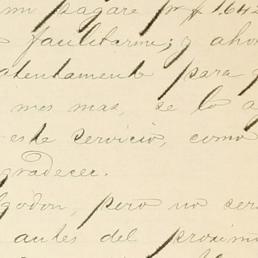 mi pagaré pr $ 1.642
facilitarme; y ahor
atentamente para q
mes mas, se lo a
este servicio, como
gradecer.
godon, pero no ser
antes del proximo